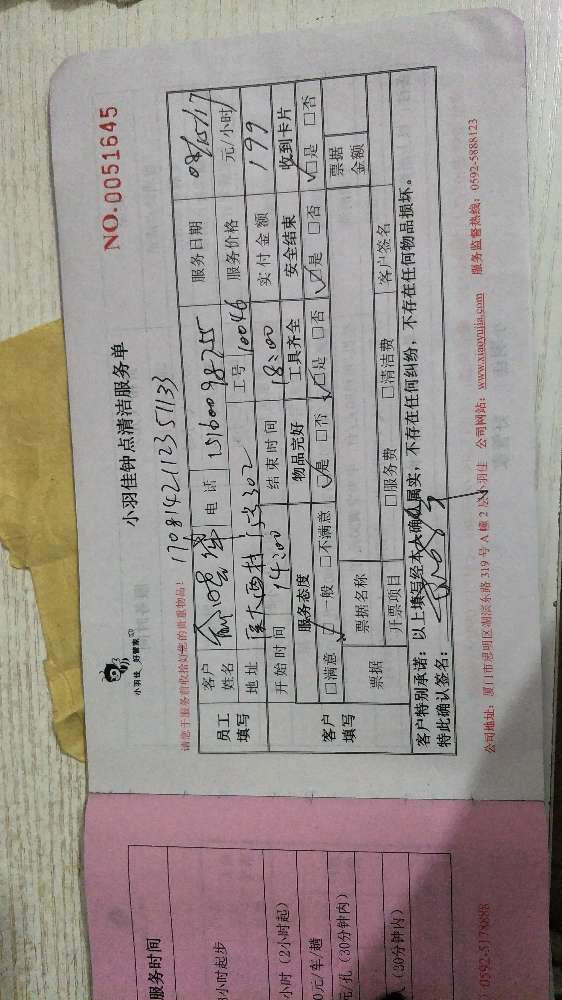 小羽佳 好管家
小羽佳钟点清洁服务单
NO.0051645
请您于服务前收拾好您的贵重物品!
170814211235 1133
员工填写
客户姓名
电话 15160098755
服务日期 08/15/17
地址
工号 10046
服务价格 元/小时
开始时间 14:00
结束时间 18:00
实付金额 199
客户填写
服务态度
物品完好
工具齐全
安全结束
收到卡片
□满意 □一般 □不满意
□是 □否
□是 □否
□是 □否
□是 □否
票据
票据名称
票据金额
开票项目
□服务费 □清洁费
客户签名
客户特别承诺：以上填写经本人确认属实，不存在任何纠纷，不存在任何物品损坏。
特此确认签名：
公司地址：厦门市思明区湖滨东路 319 号 A 幢 2 层小羽佳 公司网站：www.xiaoyujia.com 服务监督热线：0592-5888123
服务时间
小时起步
小时（2小时起）
0元/车/趟
元/孔（30分钟内）
（30分钟内）
0592-5178888